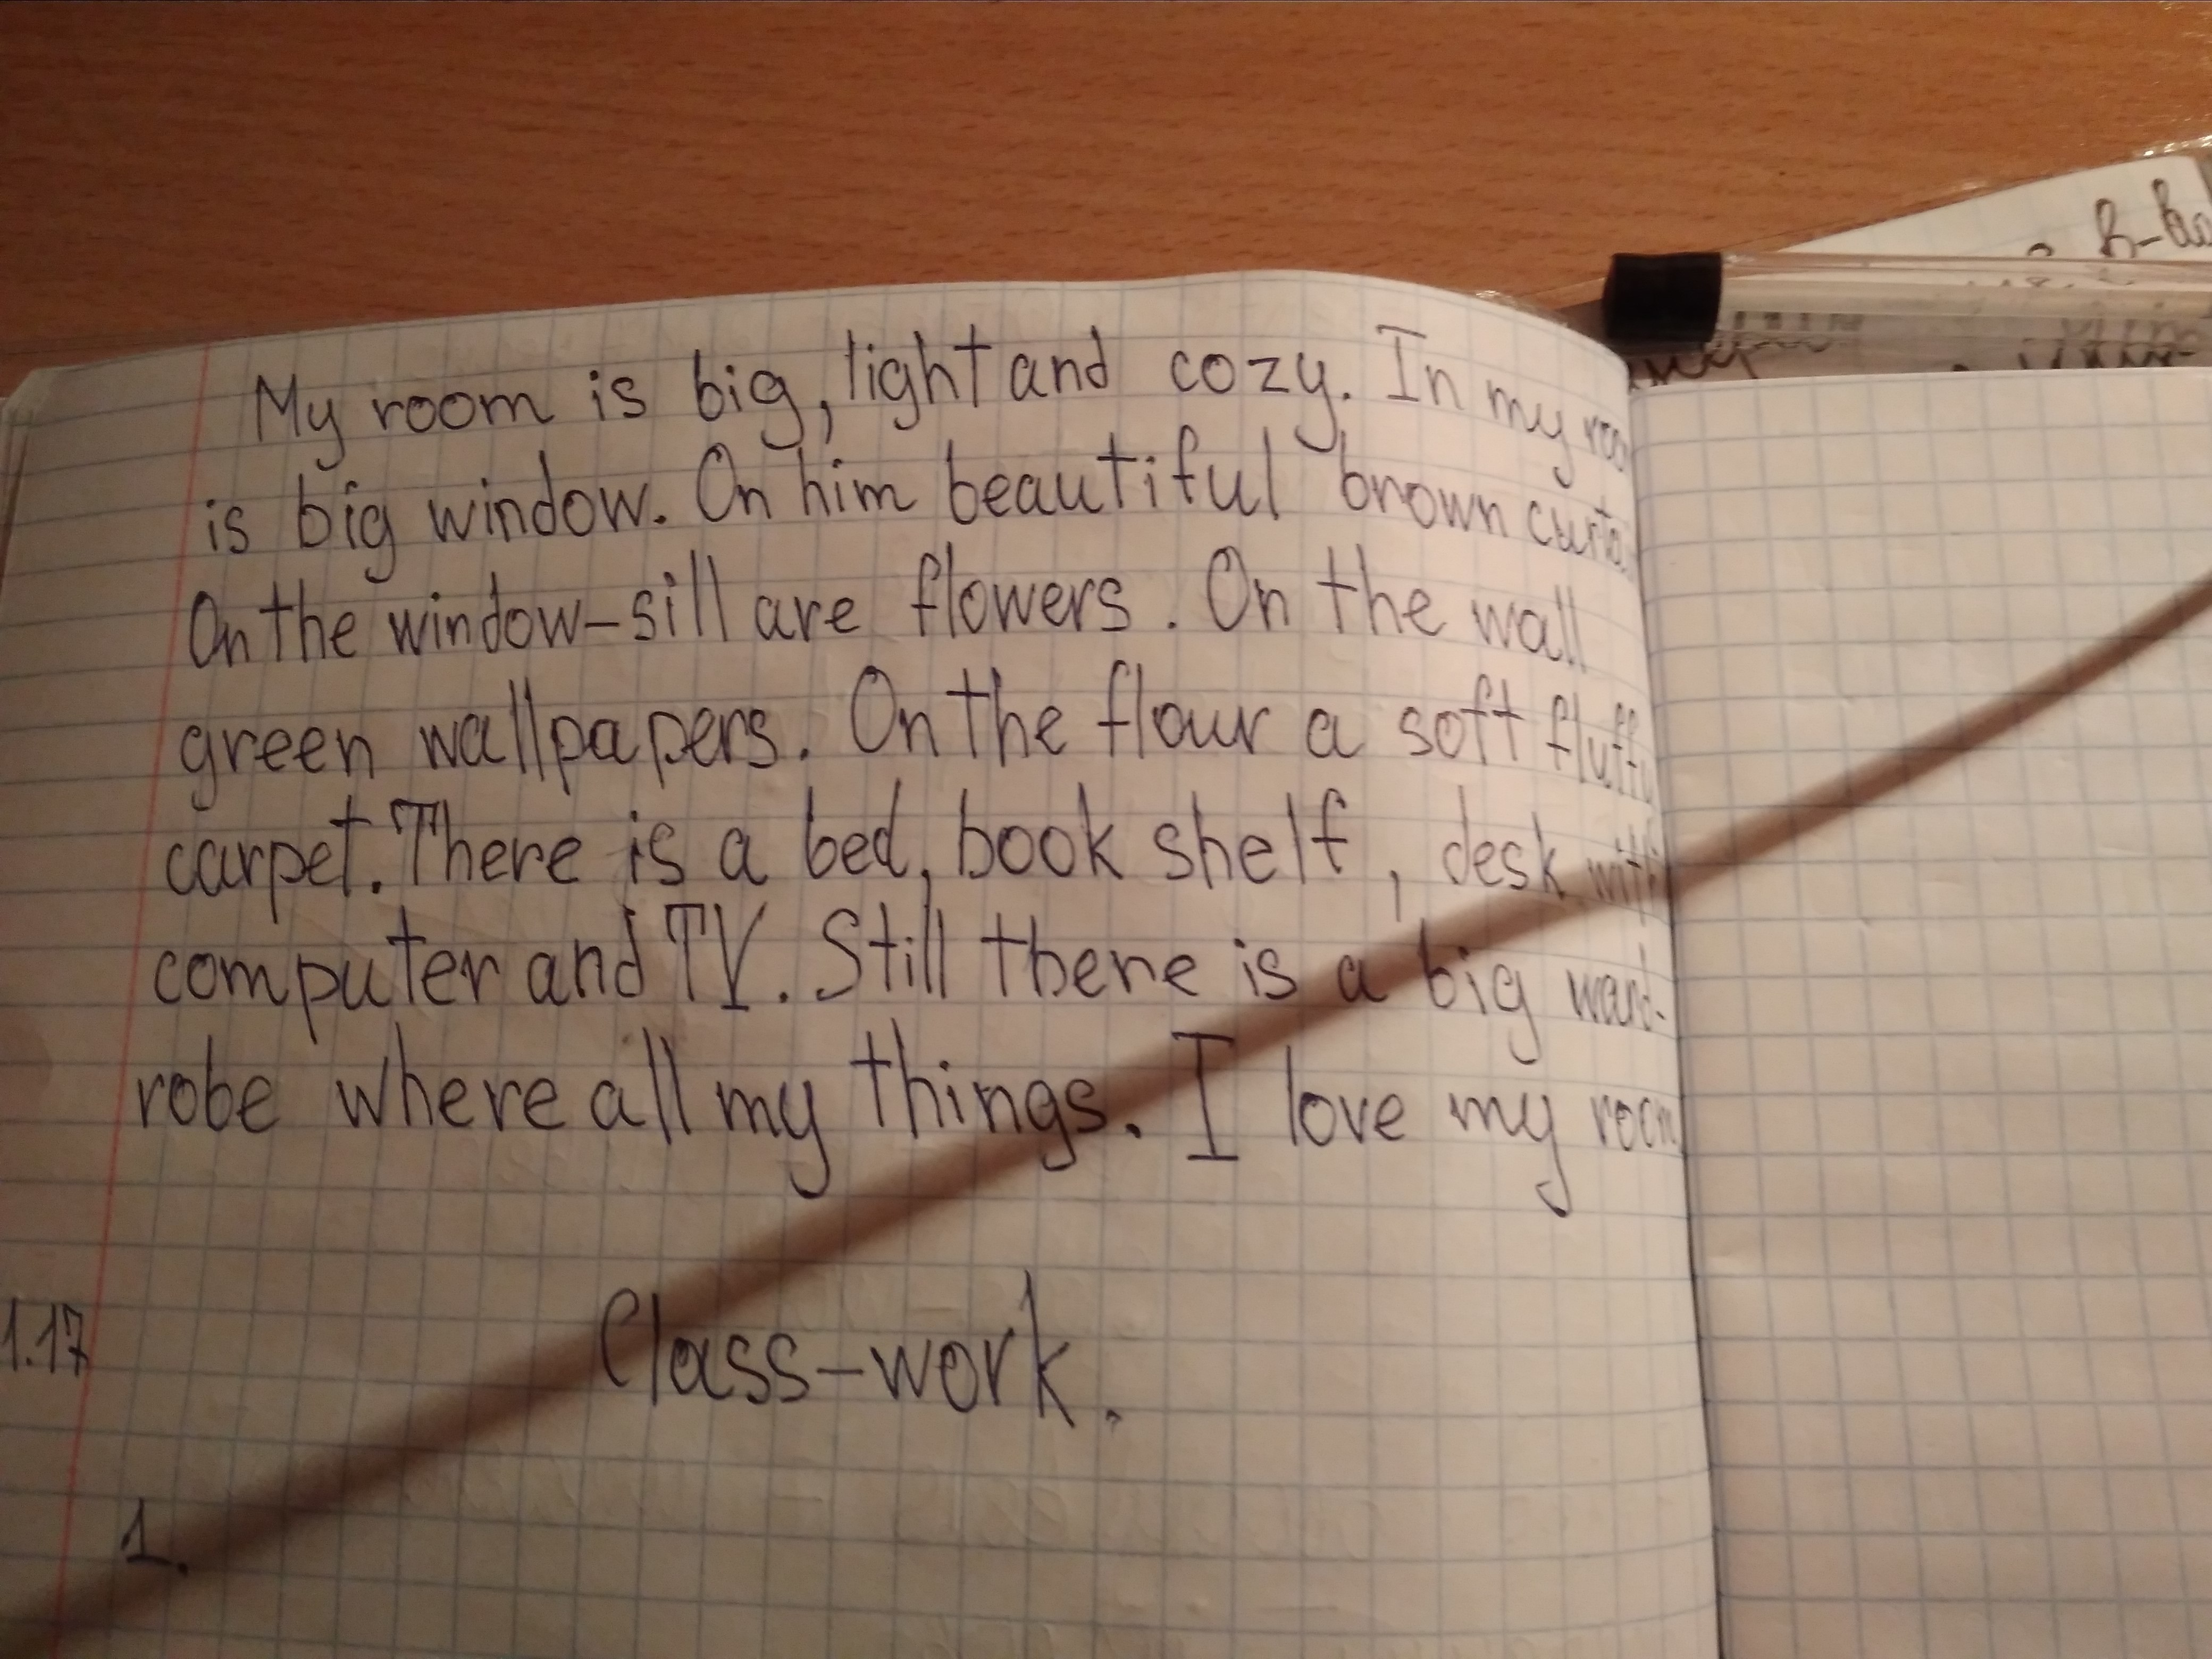 My room is big, light and cozy. In my room
is big window. On him beautiful brown
On the window-sill are flowers. On the wall
green wallpapers. On the flour a soft fluffy
carpet. There is a bed, book shelf, desk with
computer and TV. Still there is a big ward-
robe where all my things. I love my room
1.17
Class-work.
1.